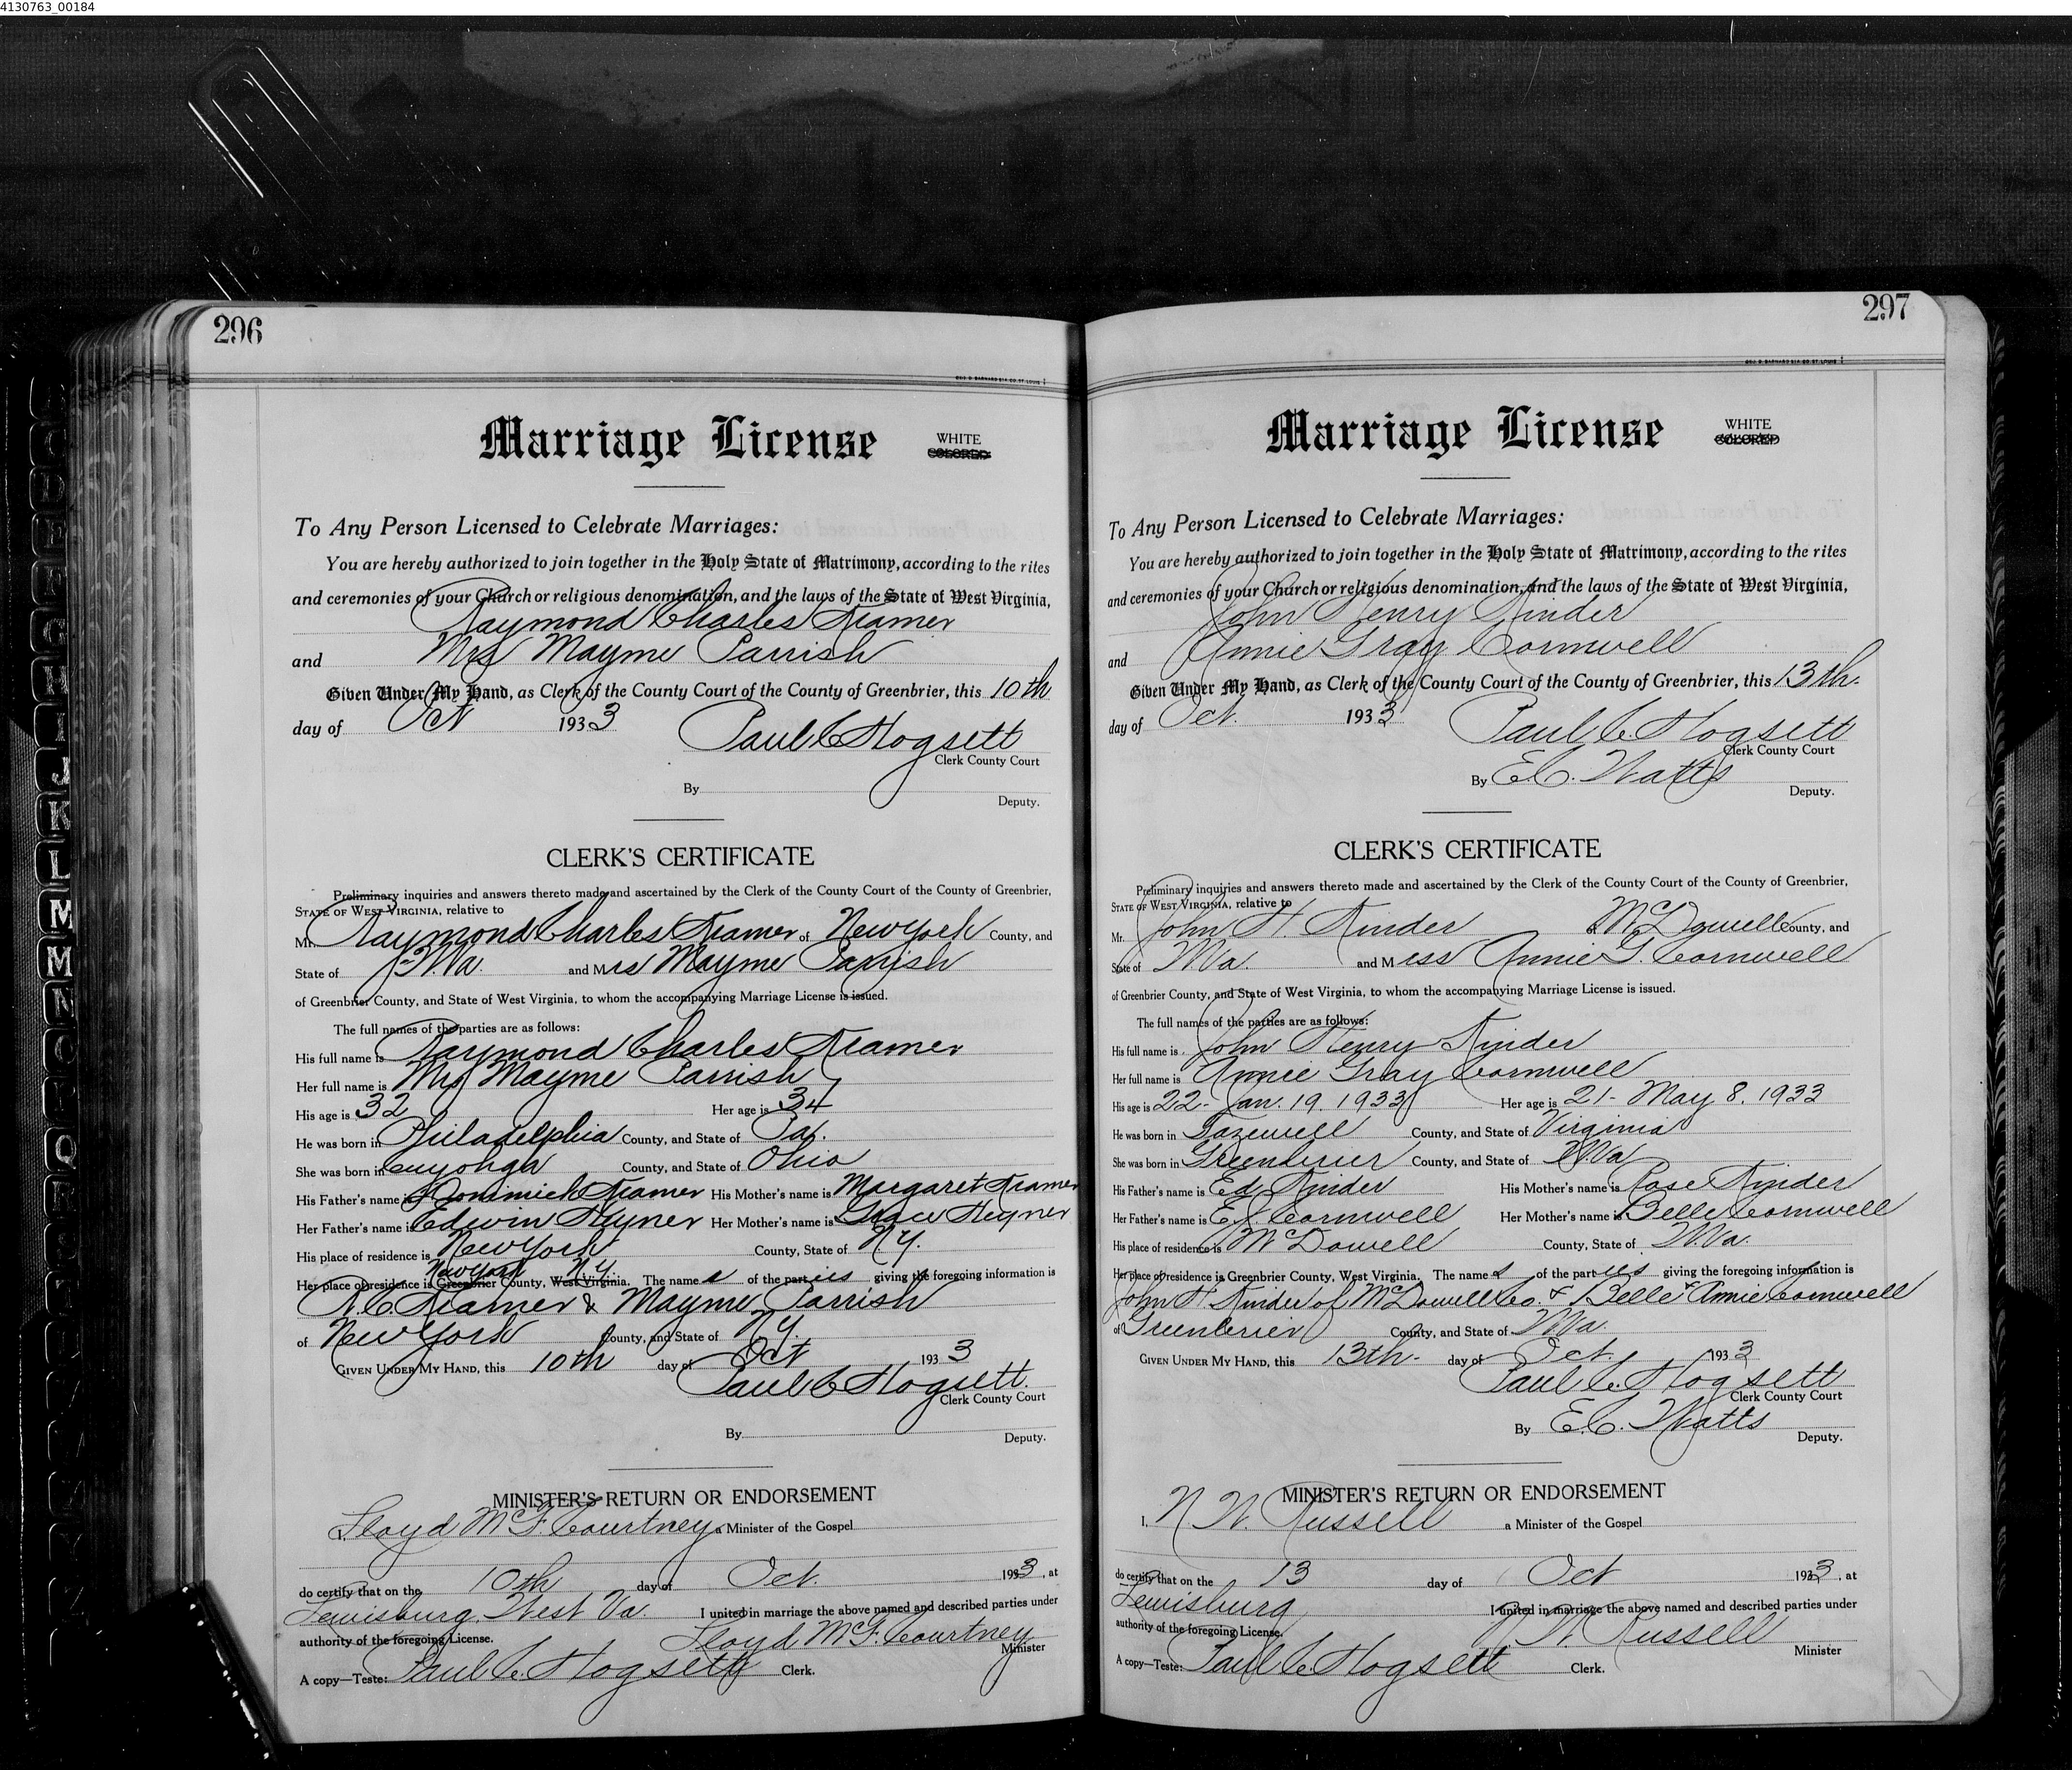 4130763_00184
296
GEO. D. BARNARD STA. CO. ST. LOUIS
Marriage License
WHITE
COLORED
To Any Person Licensed to Celebrate Marriages:
You are hereby authorized to join together in the Holy State of Matrimony, according to the rites
and ceremonies of your Church or religious denomination, and the laws of the State of West Virginia,
Raymond Charles Kramer
and Mrs Mayme Parrish
Given Under My Hand, as Clerk of the County Court of the County of Greenbrier, this 10th
day of Oct 1933 Paul C Hogsett
Clerk County Court
By
Deputy.
CLERK'S CERTIFICATE
Preliminary inquiries and answers thereto made and ascertained by the Clerk of the County Court of the County of Greenbrier,
STATE OF WEST VIRGINIA, relative to
Mr. Raymond Charles Kramer of New York County, and
State of W.Va. and Mrs Mayme Parrish
of Greenbrier County, and State of West Virginia, to whom the accompanying Marriage License is issued.
The full names of the parties are as follows:
His full name is Raymond Charles Kramer
Her full name is Mrs Mayme Parrish
His age is 32 Her age is 34
He was born in Philadelphia County, and State of Pa.
She was born in Cuyohga County, and State of Ohio
His Father's name is Dominick Kramer His Mother's name is Margaret Kramer
Her Father's name is Edwin Hegner Her Mother's name is Grace Hegner
His place of residence is New York County, State of N.Y.
New York N.Y.
Her place of residence is Greenbrier County, West Virginia. The name s of the parties giving the foregoing information is
R. C Kramer & Mayme Parrish
of New York County, and State of N.Y.
GIVEN UNDER MY HAND, this 10th day of Oct 1933
Paul C Hogsett.
Clerk County Court
By
Deputy.
MINISTER'S RETURN OR ENDORSEMENT
I, Lloyd McF. Courtney a Minister of the Gospel
do certify that on the 10th day of Oct. 1933, at
Lewisburg, West Va. I united in marriage the above named and described parties under
authority of the foregoing License. Lloyd McF. Courtney
Minister
A copy—Teste: Paul C. Hogsett Clerk.
297
GEO. D. BARNARD STA. CO. ST. LOUIS
Marriage License
WHITE
COLORED
To Any Person Licensed to Celebrate Marriages:
You are hereby authorized to join together in the Holy State of Matrimony, according to the rites
and ceremonies of your Church or religious denomination, and the laws of the State of West Virginia,
John Henry Kinder
and Annie Gray Cornwell
Given Under My Hand, as Clerk of the County Court of the County of Greenbrier, this 13th.
day of Oct. 1933 Paul C Hogsett
Clerk County Court
By E.C. Watts
Deputy.
CLERK'S CERTIFICATE
Preliminary inquiries and answers thereto made and ascertained by the Clerk of the County Court of the County of Greenbrier,
STATE OF WEST VIRGINIA, relative to
Mr. John H. Kinder of McDowell County, and
State of W.Va. and Miss Annie G. Cornwell
of Greenbrier County, and State of West Virginia, to whom the accompanying Marriage License is issued.
The full names of the parties are as follows:
His full name is John Henry Kinder
Her full name is Annie Gray Cornwell
His age is 22- Jan. 19. 1933 Her age is 21- May 8. 1933
He was born in Tazewell County, and State of Virginia
She was born in Greenbrier County, and State of W.Va
His Father's name is Ed Kinder His Mother's name is Rose Kinder
Her Father's name is E.J. Cornwell Her Mother's name is Belle Cornwell
His place of residence is McDowell County, State of W.Va.
Her place of residence is Greenbrier County, West Virginia. The name s of the parties giving the foregoing information is
John H. Kinder of McDowell Co. & Belle & Annie Cornwell
of Greenbrier County, and State of W.Va.
GIVEN UNDER MY HAND, this 13th- day of Oct. 1933
Paul C. Hogsett
Clerk County Court
By E.C. Watts
Deputy.
MINISTER'S RETURN OR ENDORSEMENT
I, N. W. Russell a Minister of the Gospel
do certify that on the 13 day of Oct 1933, at
Lewisburg I united in marriage the above named and described parties under
authority of the foregoing License. N. W. Russell
Minister
A copy—Teste: Paul C Hogsett Clerk.
H
I
J
K
L
M
M
N
O
Q